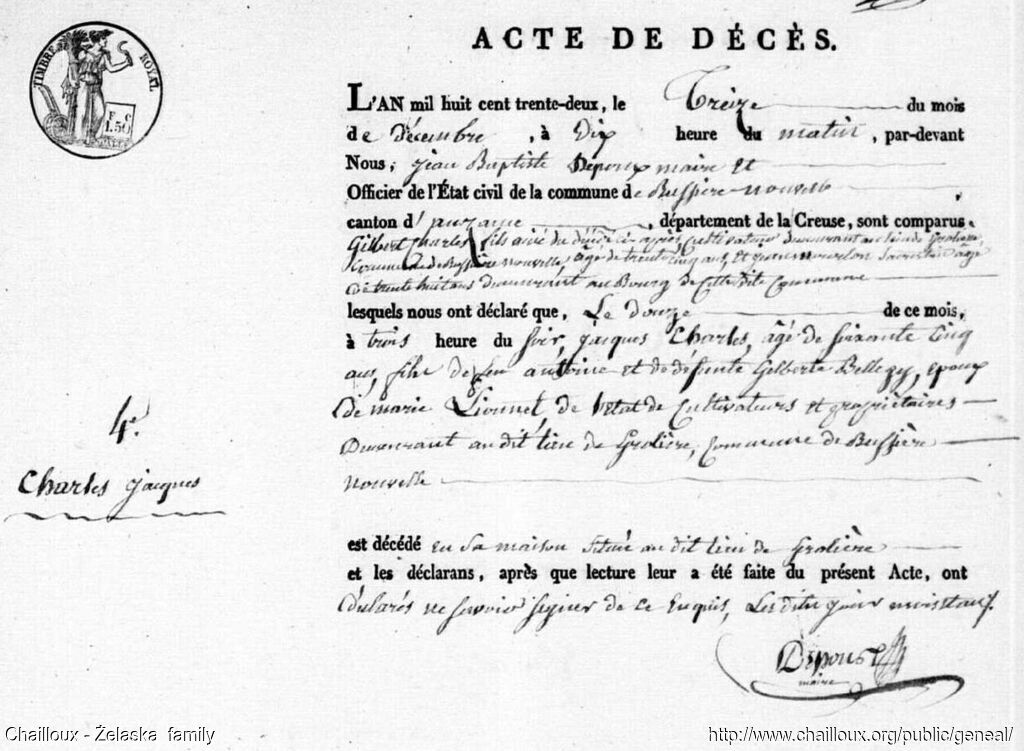 TIMBRE ROYAL
F. C
1.50
ACTE DE DÉCÈS.
L'AN mil huit cent trente-deux, le Treize du mois
de décembre, à Dix heure du matin, par-devant
Nous, Jean Baptiste Depoux maire et
Officier de l'État civil de la commune de Bussière-nouvelle,
canton d'auzance, département de la Creuse, sont comparus
Gilbert Charles, fils ainé du décédé ci après, Cultivateur demeurant au lieu de Grolière,
Commune de Bussière nouvelle, âgé de trente cinq ans, et jean mourlon Sacristain âgé
de trente huit ans demeurant au Bourg de cette dite Commune
lesquels nous ont déclaré que, Le douze de ce mois,
à trois heure du soir, jacques Charles, âgé de soixante cinq
ans, fils de feu antoine et de défunte Gilberte Bellezy, epoux
de marie Lionnet, de l'état de Cultivateurs et propriétaires
Demeurant au dit lieu de Grolière, Commune de Bussière
nouvelle
4e.
Charles jacques
est décédé en sa maison située au dit lieu de Grolière
et les déclarans, après que lecture leur a été faite du présent Acte, ont
déclarés ne savoir signer de ce Enquis, Les dits jour mois et an.
Depoux
maire
Chailloux - Żelaska family
http://www.chailloux.org/public/geneal/